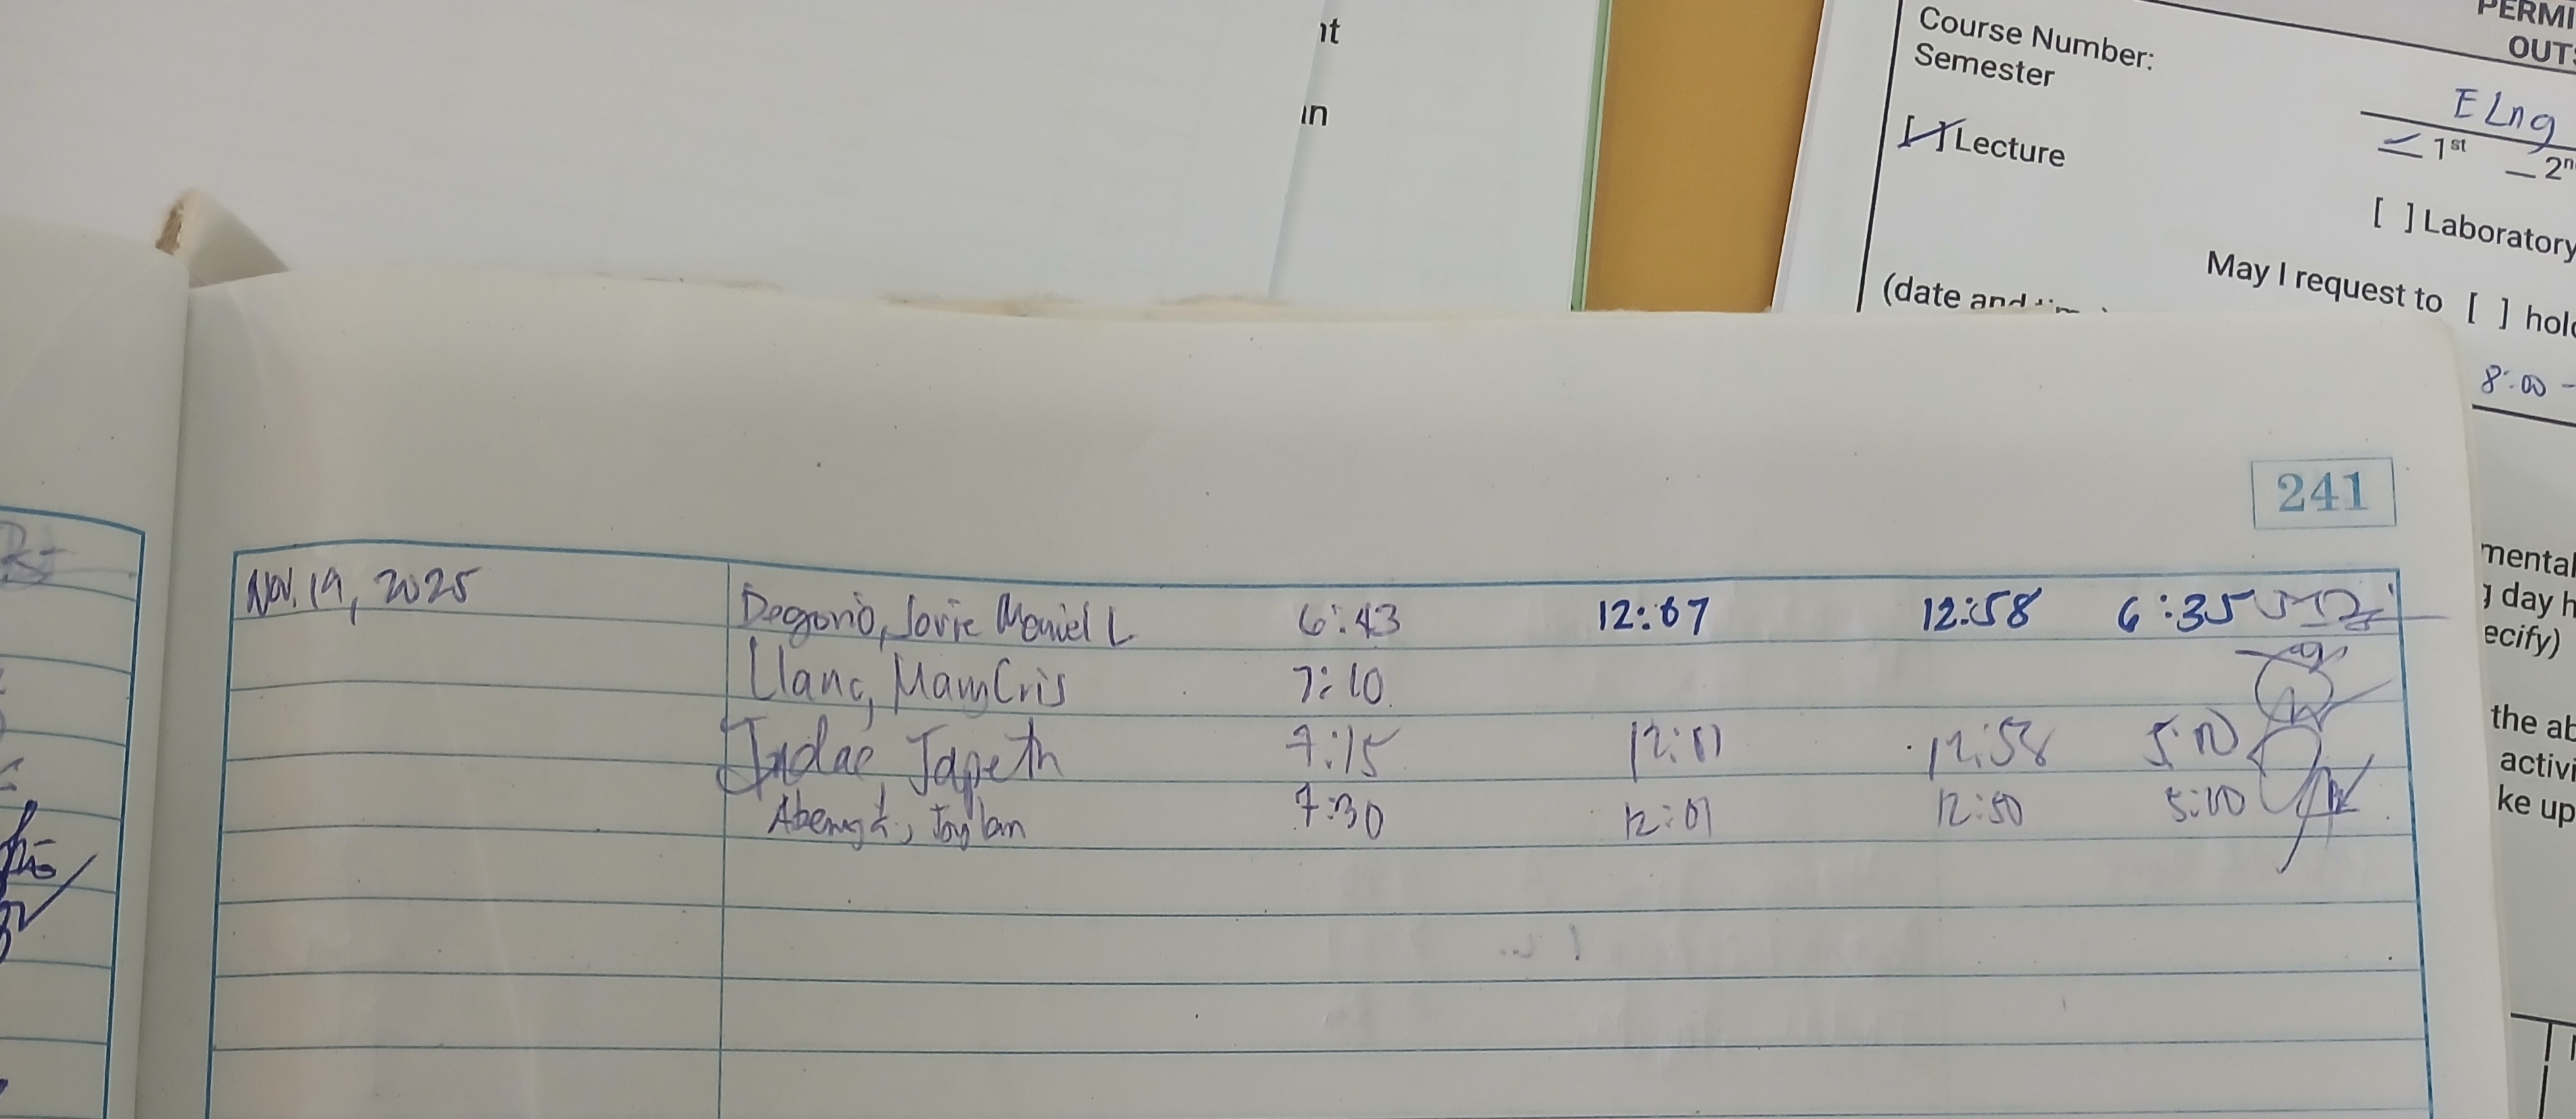 nt
in
PERMI
OUTS
Course Number:
Semester
ELng
1st _ 2n
[ ] Lecture
[ ] Laboratory
May I request to [ ] hold
(date and
8:00 -
241
mental
g day h
ecify)
the ab
activi
ke up
Nov. 19, 2025 Degorio, Jovie Moniel L 6:43 12:07 12:58 6:35
Llano, MaryCris 7:10
Japeth 7:15 12:01 12:58 5:00
7:30 12:01 12:50 5:00